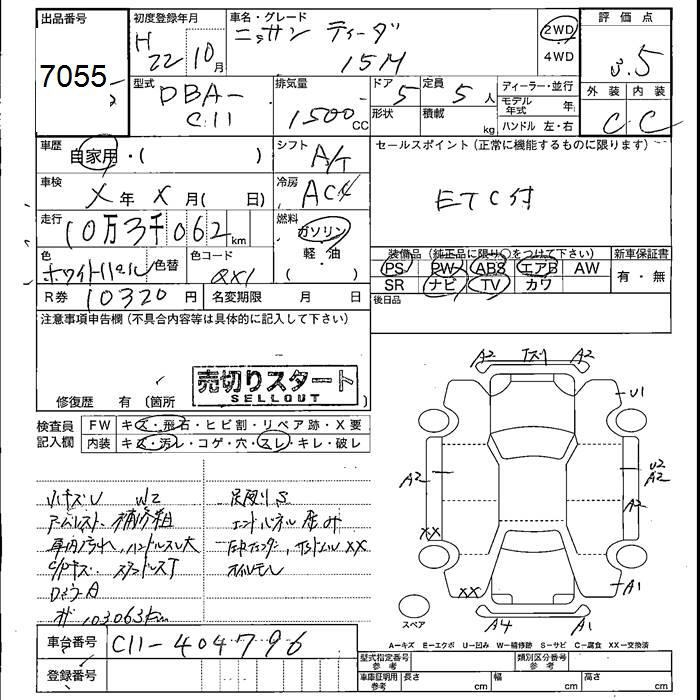 出品番号
7055
初度登録年月
H22 10月
車名・グレード
ニッサン ティーダ
15M
2WD
4WD
評価点
3.5
外装 内装
C C
型式
DBA-
C11
排気量
1500CC
ドア 5
形状
定員 5人
積載 kg
ディーラー・並行
モデル年式 年
ハンドル 左・右
車歴
自家用・( )
シフト
A/T
セールスポイント (正常に機能するものに限ります)
ETC付
車検
X年 X月( 日)
冷房
AC
走行
10万3千062km
燃料
ガソリン
軽・油
色
ホワイトパール
色替
色コード
QX1
装備品 (純正品に限り○をつけて下さい)
新車保証書
PS PW ABS エアB AW
有・無
SR ナビ TV カワ
後日品
R券 10320円
名変期限 月 日
注意事項申告欄 (不具合内容等は具体的に記入して下さい)
売切りスタート
SELLOUT
修復歴 有 (箇所 )
検査員
記入欄
FW キズ・飛石・ヒビ割・リペア跡・X要
内装 キズ・汚レ・コゲ・穴・スレ・キレ・破レ
小キズU W2
アームレスト 補修粗
車内汚れ、ハンドルスレ大
103063km
足廻りS
オイルモレ
A2 A2
U1
A2
U2
A2
A2
XX
XX
A1
A4 A1
スペア
A-キズ E-エクボ U-凹み W-補修跡 S-サビ C-腐食 XX-交換済
車台番号
C11-404796
登録番号
型式指定番号
参考
類別区分番号
参考
車庫証明用
参考
長さ cm
幅 cm
高さ cm